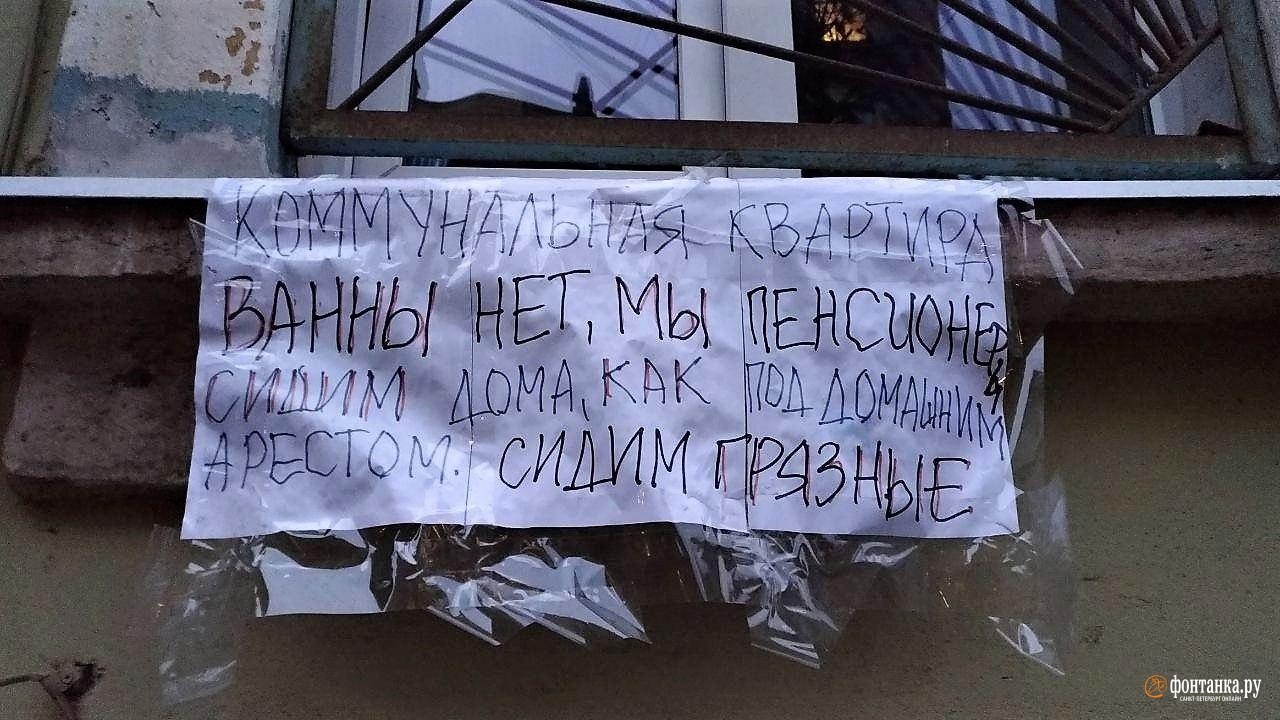 КОММУНАЛЬНАЯ КВАРТИРА
ВАННЫ НЕТ, МЫ ПЕНСИОНЕРЫ
СИДИМ ДОМА, КАК ПОД ДОМАШНИМ
АРЕСТОМ. СИДИМ ГРЯЗНЫЕ
фонтанка.ру
САНКТ-ПЕТЕРБУРГ ОНЛАЙН